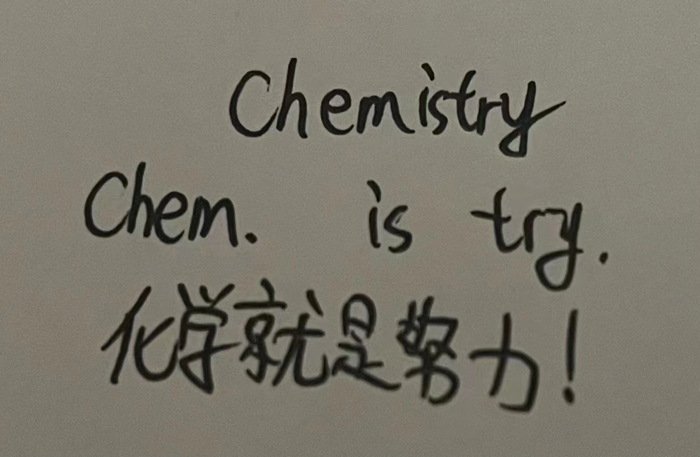 Chemistry
Chem. is try.
化学就是努力!